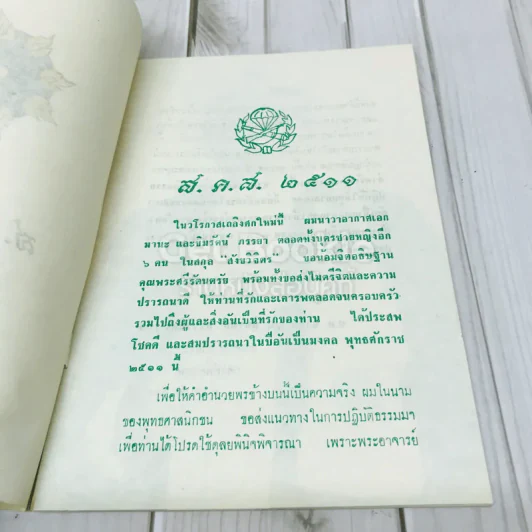 ส. ค. ส. ๒๕๑๑
ในวโรกาสเถลิงศกใหม่นี้ ผมนาวาอากาศเอก
มานะ และนิมรัตน์ ภรรยา ตลอดทั้งบุตรชายหญิงอีก
๖ คน ในสกุล "สังขวิจิตร" ขอน้อมจิตอธิษฐาน
คุณพระศรีรัตนตรัย พร้อมทั้งขอส่งไมตรีจิตและความ
ปรารถนาดี ให้ท่านที่รักและเคารพตลอดจนครอบครัว
รวมไปถึงผู้และสิ่งอันเป็นที่รักของท่าน ได้ประสพ
โชคดี และสมปรารถนาในปีอันเป็นมงคล พุทธศักราช
๒๕๑๑ นี้
เพื่อให้คำอำนวยพรข้างบนนี้เป็นความจริง ผมในนาม
ของพุทธศาสนิกชน ขอส่งแนวทางในการปฏิบัติธรรมมา
เพื่อท่านได้โปรดใช้ดุลยพินิจพิจารณา เพราะพระอาจารย์